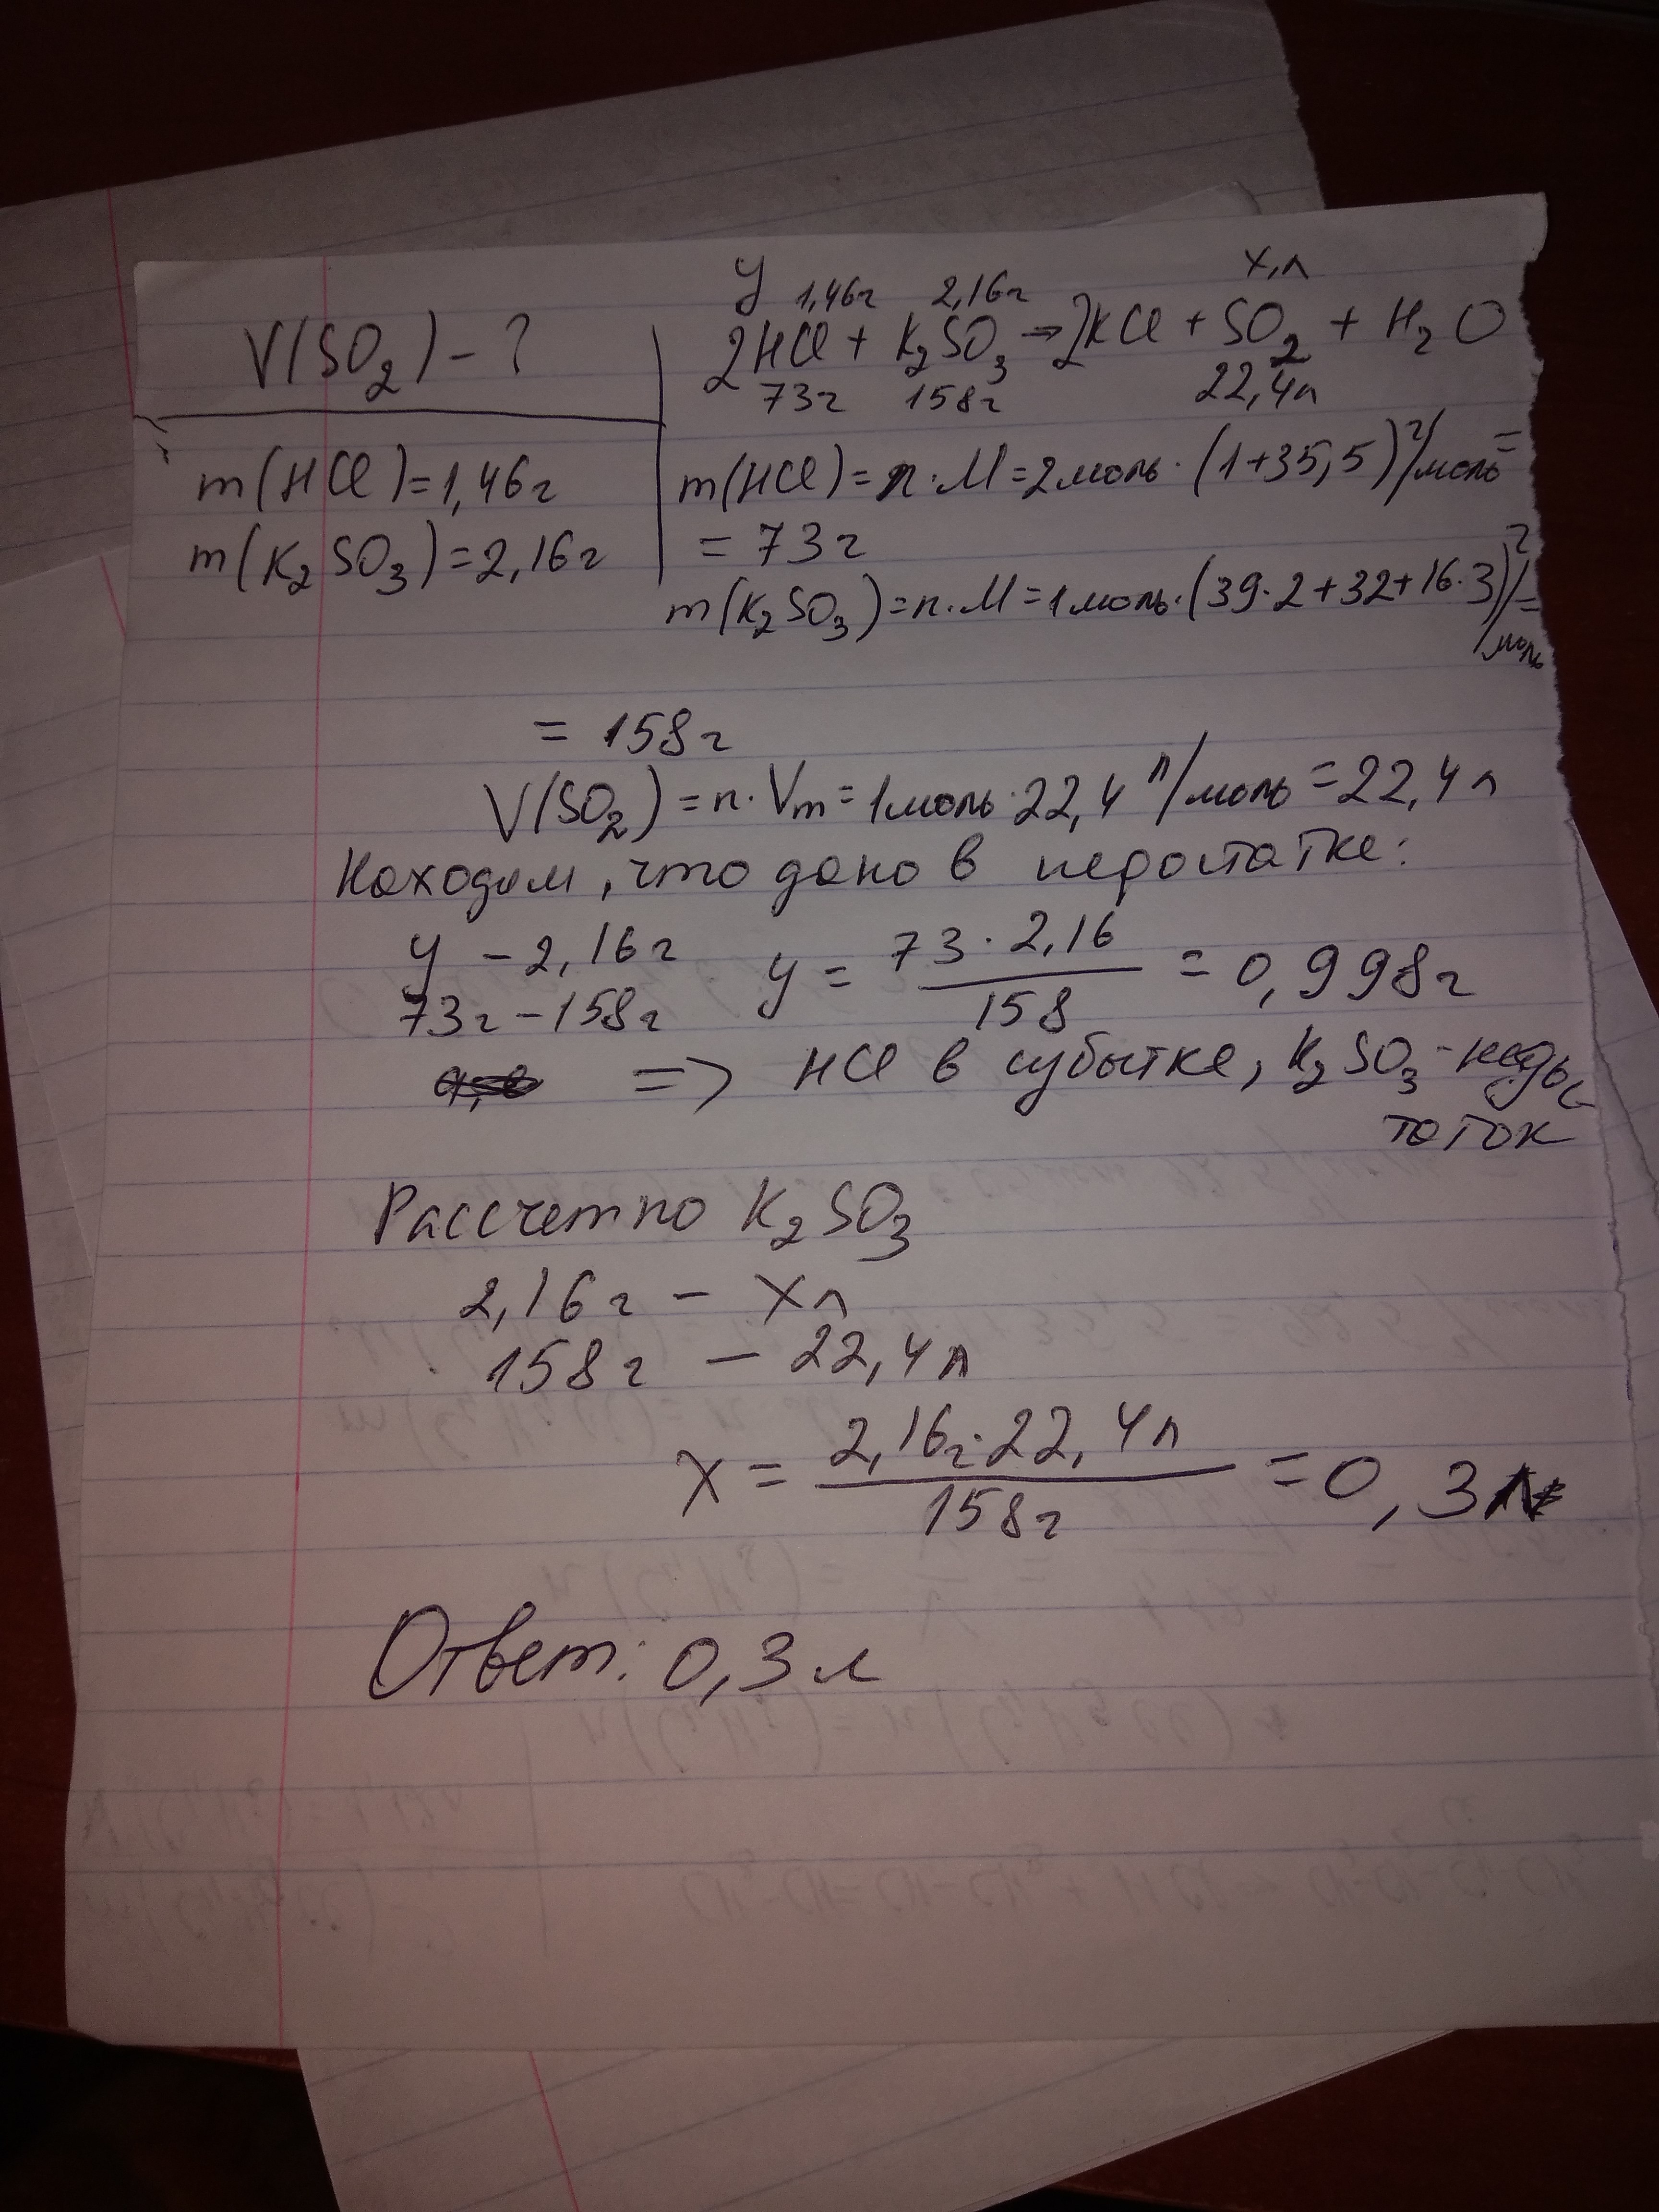 V(SO₂) – ?
m(HCl)=1,46г
m(K₂SO₃)=2,16г
y 1,46г 2,16г x,л
2HCl + K₂SO₃ → 2KCl + SO₂ + H₂O
73г 158г 22,4л
m(HCl)=n·M=2моль·(1+35,5)г/моль=
= 73г
m(K₂SO₃)=n·M=1моль·(39·2+32+16·3)г/моль=
= 158г
V(SO₂)=n·Vm=1моль·22,4 л/моль=22,4л
Находим, что дано в недостатке:
y – 2,16г y = 73·2,16/158 = 0,998г
73г – 158г
=> HCl в избытке, K₂SO₃ - недос
таток
Рассчет по K₂SO₃
2,16г – xл
158г – 22,4л
x = 2,16г·22,4л/158г = 0,3л
Ответ: 0,3л